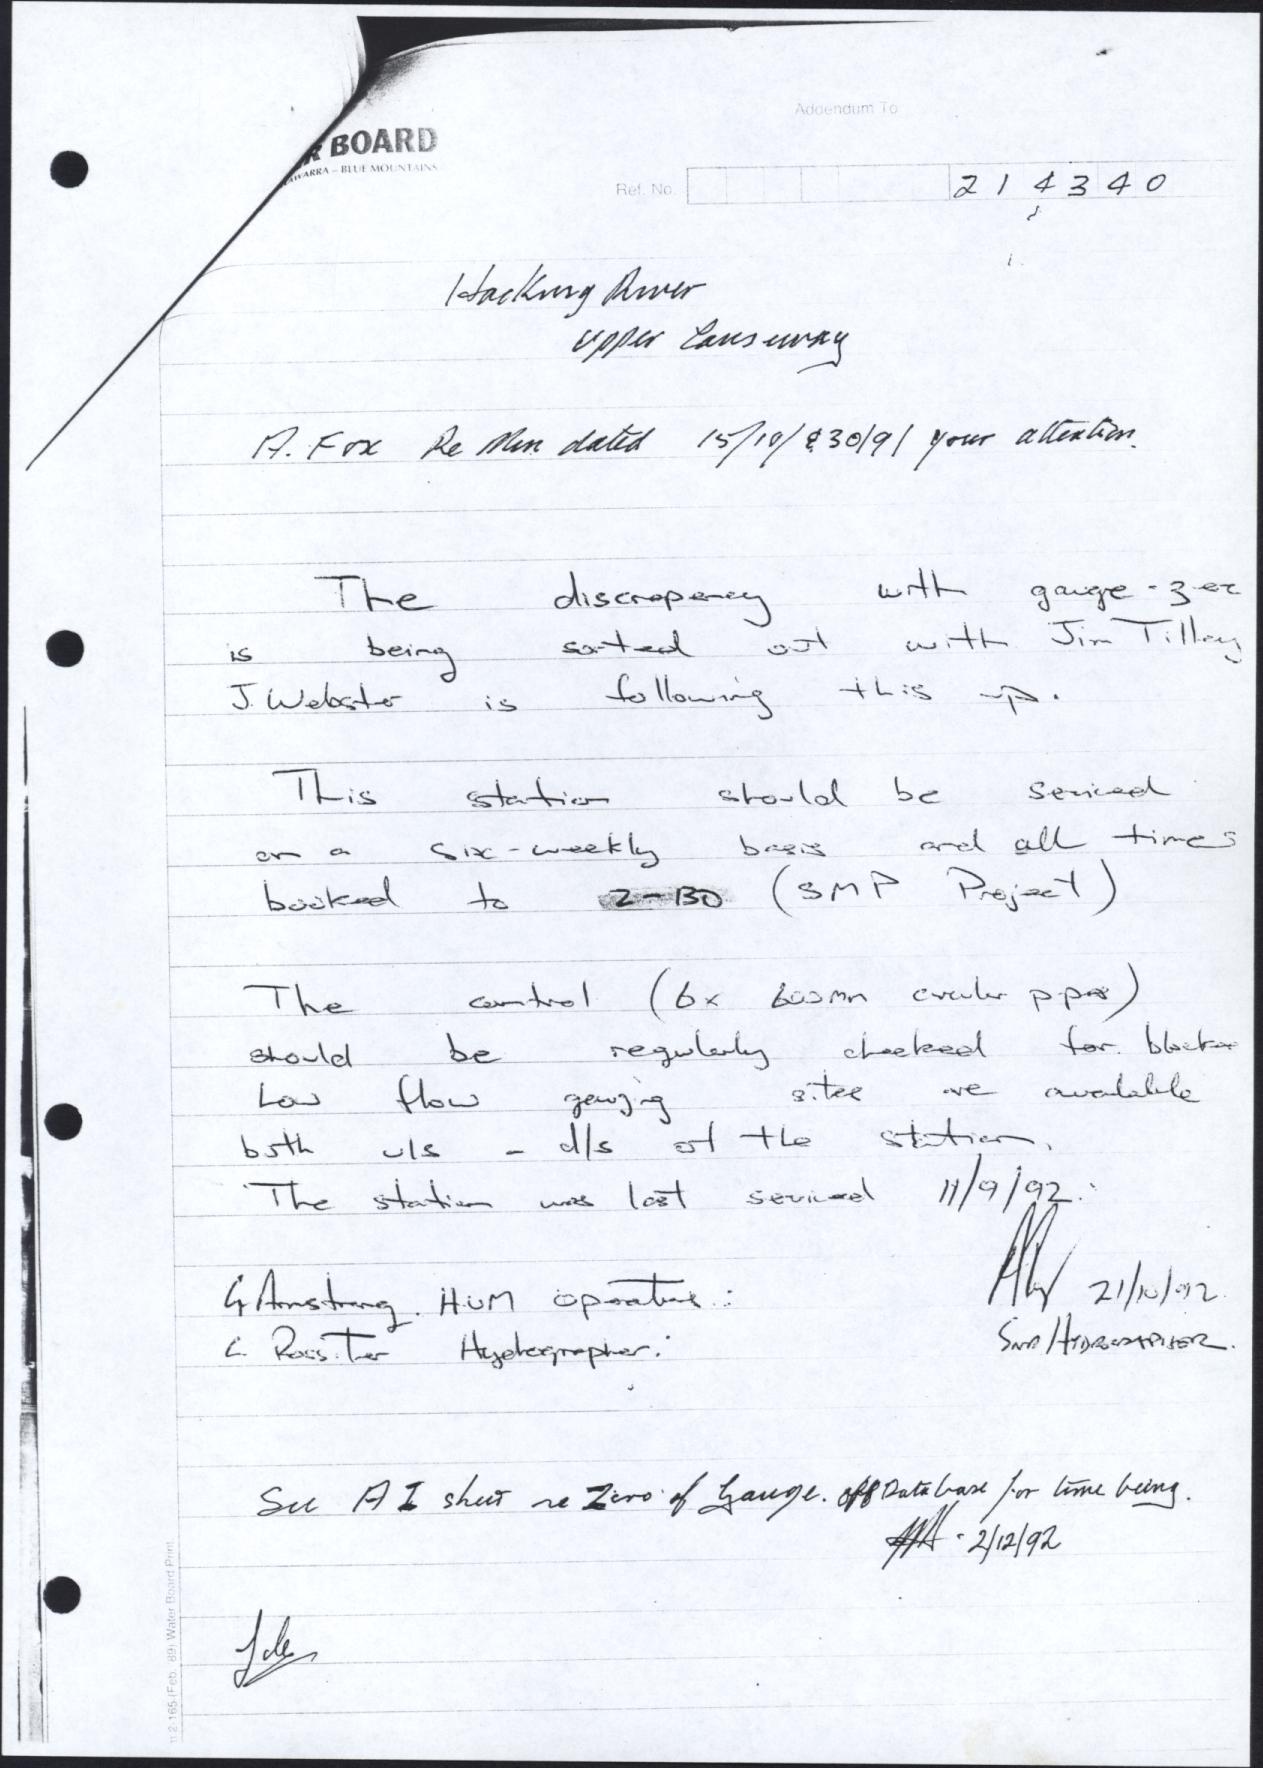 R BOARD
AWARRA – BLUE MOUNTAINS
Addendum To
Ref. No. 214340
Hacking River
Upper Causeway
A. Fox Re Mem dated 15/10/ & 30/9/ your attention.
The discrepency with gauge-zer
is being sorted out with Jim Tilley
J. Webster is following this up.
This station should be serviced
on a six-weekly basis and all times
booked to 2-BD (SMP Project)
The control (6x 600mm circular pipes)
should be regularly checked for blocka
Low flow gauging sites are available
both u/s - d/s of the station.
The station was last serviced 11/9/92.
21/10/92
G Armstrong. HUM operations:
Snr/HYDROGRAPHER.
C. Rossiter Hydrographer:
See A I sheet re Zero of Gauge. off Database for time being.
2/12/92
2 165 (Feb. '89) Water Board Print